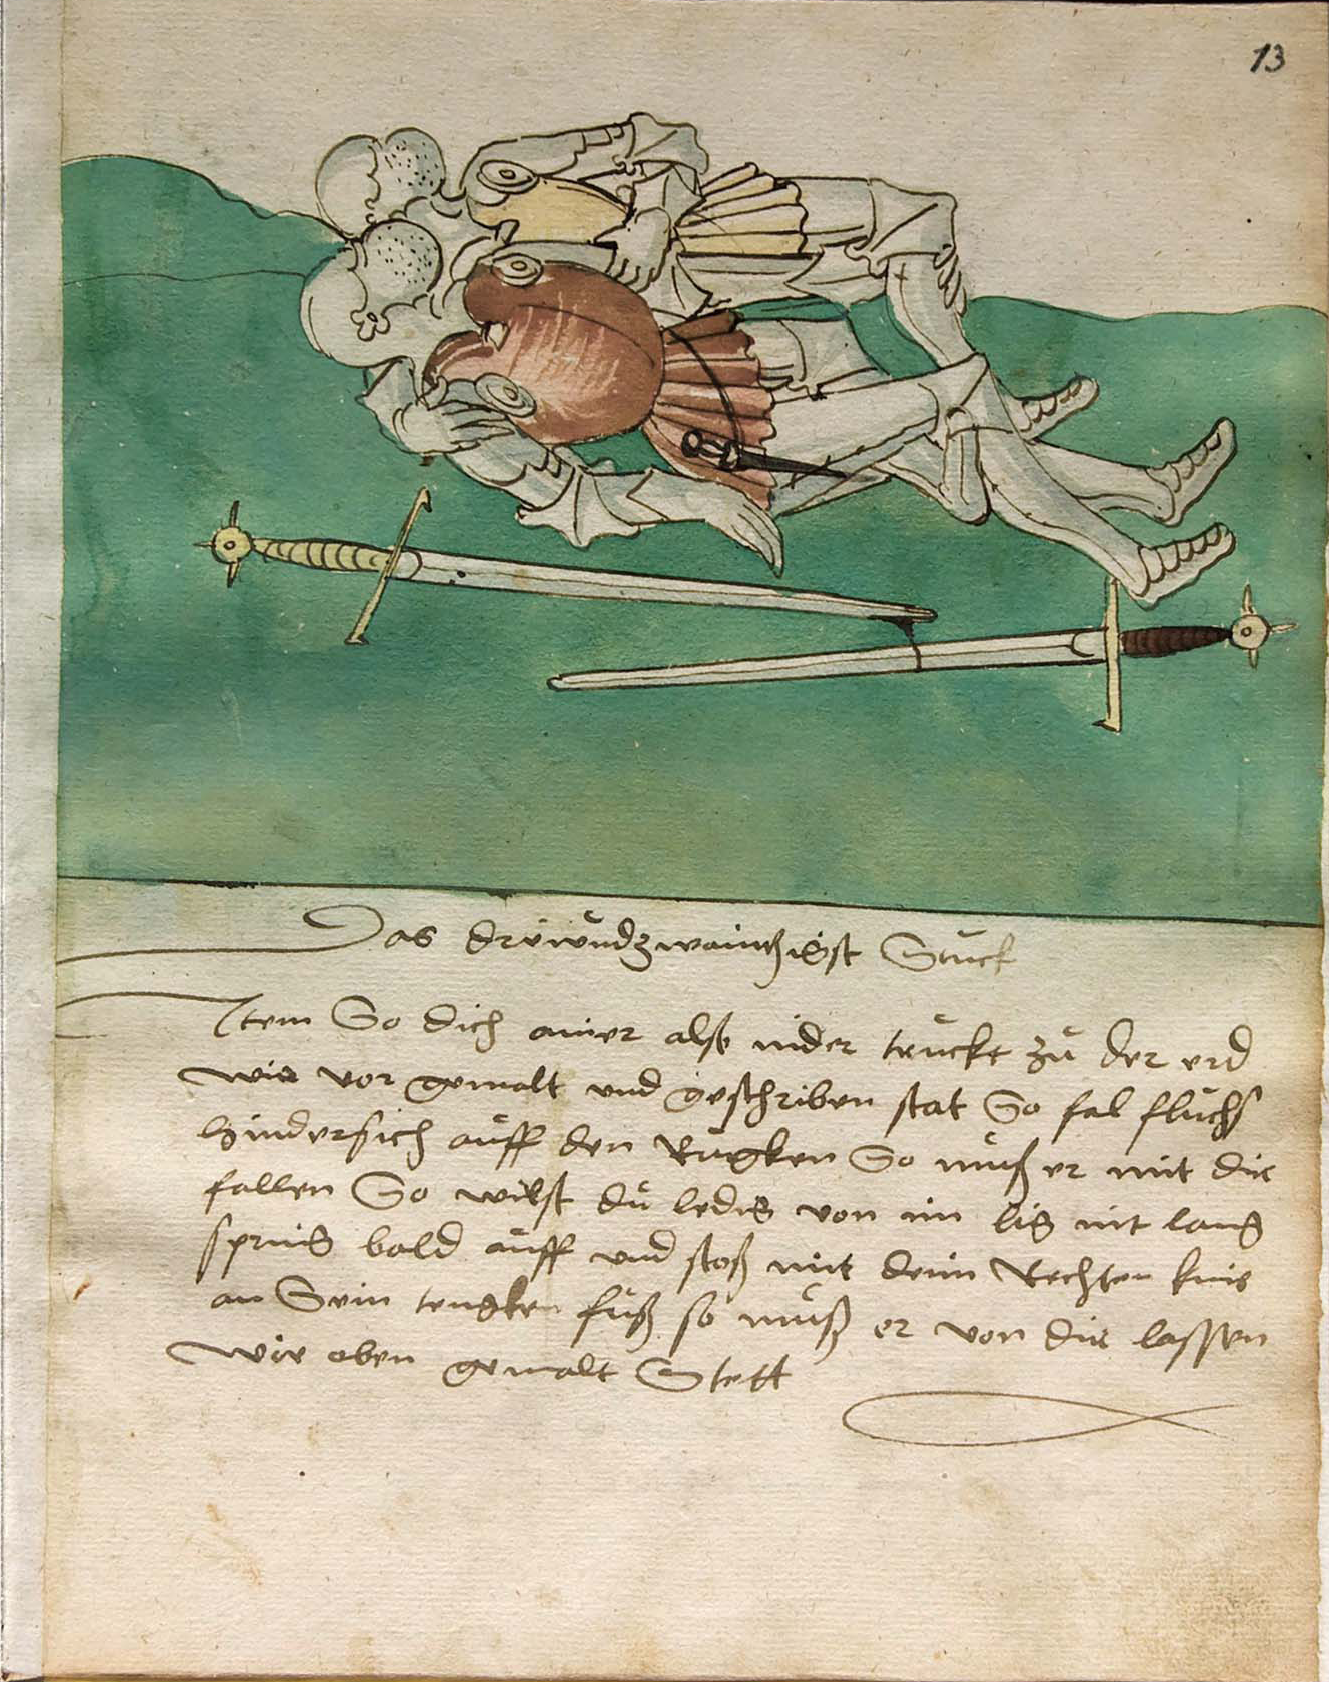 13
Das dreẅundzwaintzigist Stuck
Item So dich ainer alß nider truckt zů der erd
wie vor gemalt und geschriben stat So fal fluchs
hindersich auff den Rugken So můß er mit dir
fallen So wilst dů ledig von im lig nit lang
spring bald auff und stoß mit deim Rechten knie
an Sein tengken fůß so můß er von dir lassen
wie oben gemalt Stett